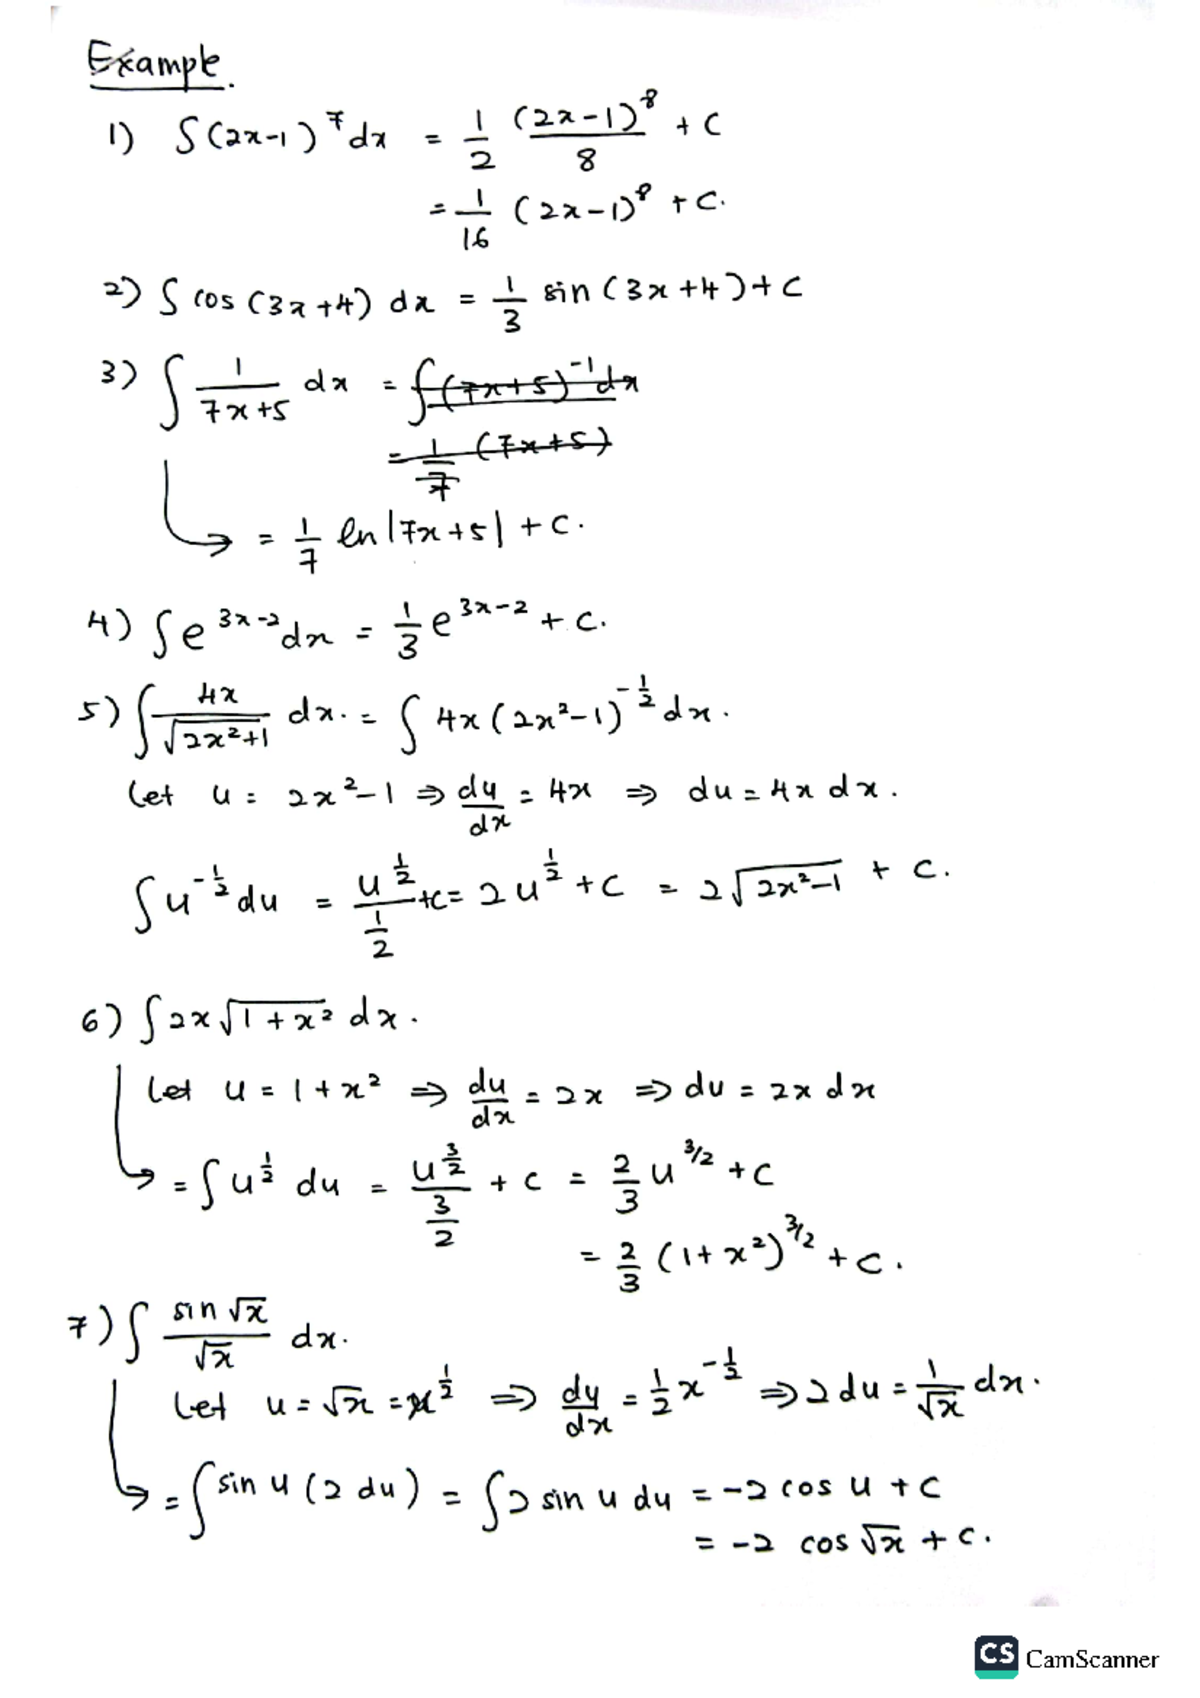 Example.
1) ∫(2x-1)^7 dx = 1/2 (2x-1)^8/8 + C
= 1/16 (2x-1)^8 + C.
2) ∫ cos (3x+4) dx = 1/3 sin (3x+4)+C
3) ∫ 1/(7x+5) dx = ∫(7x+5)^-1 dx
= 1/7 (7x+5)
→ = 1/7 ln|7x+5| + C.
4) ∫e^(3x-2) dx = 1/3 e^(3x-2) + C.
5) ∫ 4x/√(2x²+1) dx. = ∫ 4x(2x²-1)^(-1/2) dx.
Let u = 2x²-1 ⇒ du/dx = 4x ⇒ du = 4x dx.
∫u^(-1/2) du = u^(1/2)/(1/2) +C = 2u^(1/2) +C = 2√(2x²-1) + C.
6) ∫2x√(1+x²) dx.
Let u = 1+x² ⇒ du/dx = 2x ⇒ du = 2x dx
→ = ∫u^(1/2) du = u^(3/2)/(3/2) + C = 2/3 u^(3/2) + C
= 2/3 (1+x²)^(3/2) + C.
7) ∫ sin √x/√x dx.
Let u = √x = x^(1/2) ⇒ du/dx = 1/2 x^(-1/2) ⇒ 2du = 1/√x dx.
→ = ∫sin u (2 du) = ∫2 sin u du = -2 cos u + C
= -2 cos √x + C.
CS CamScanner